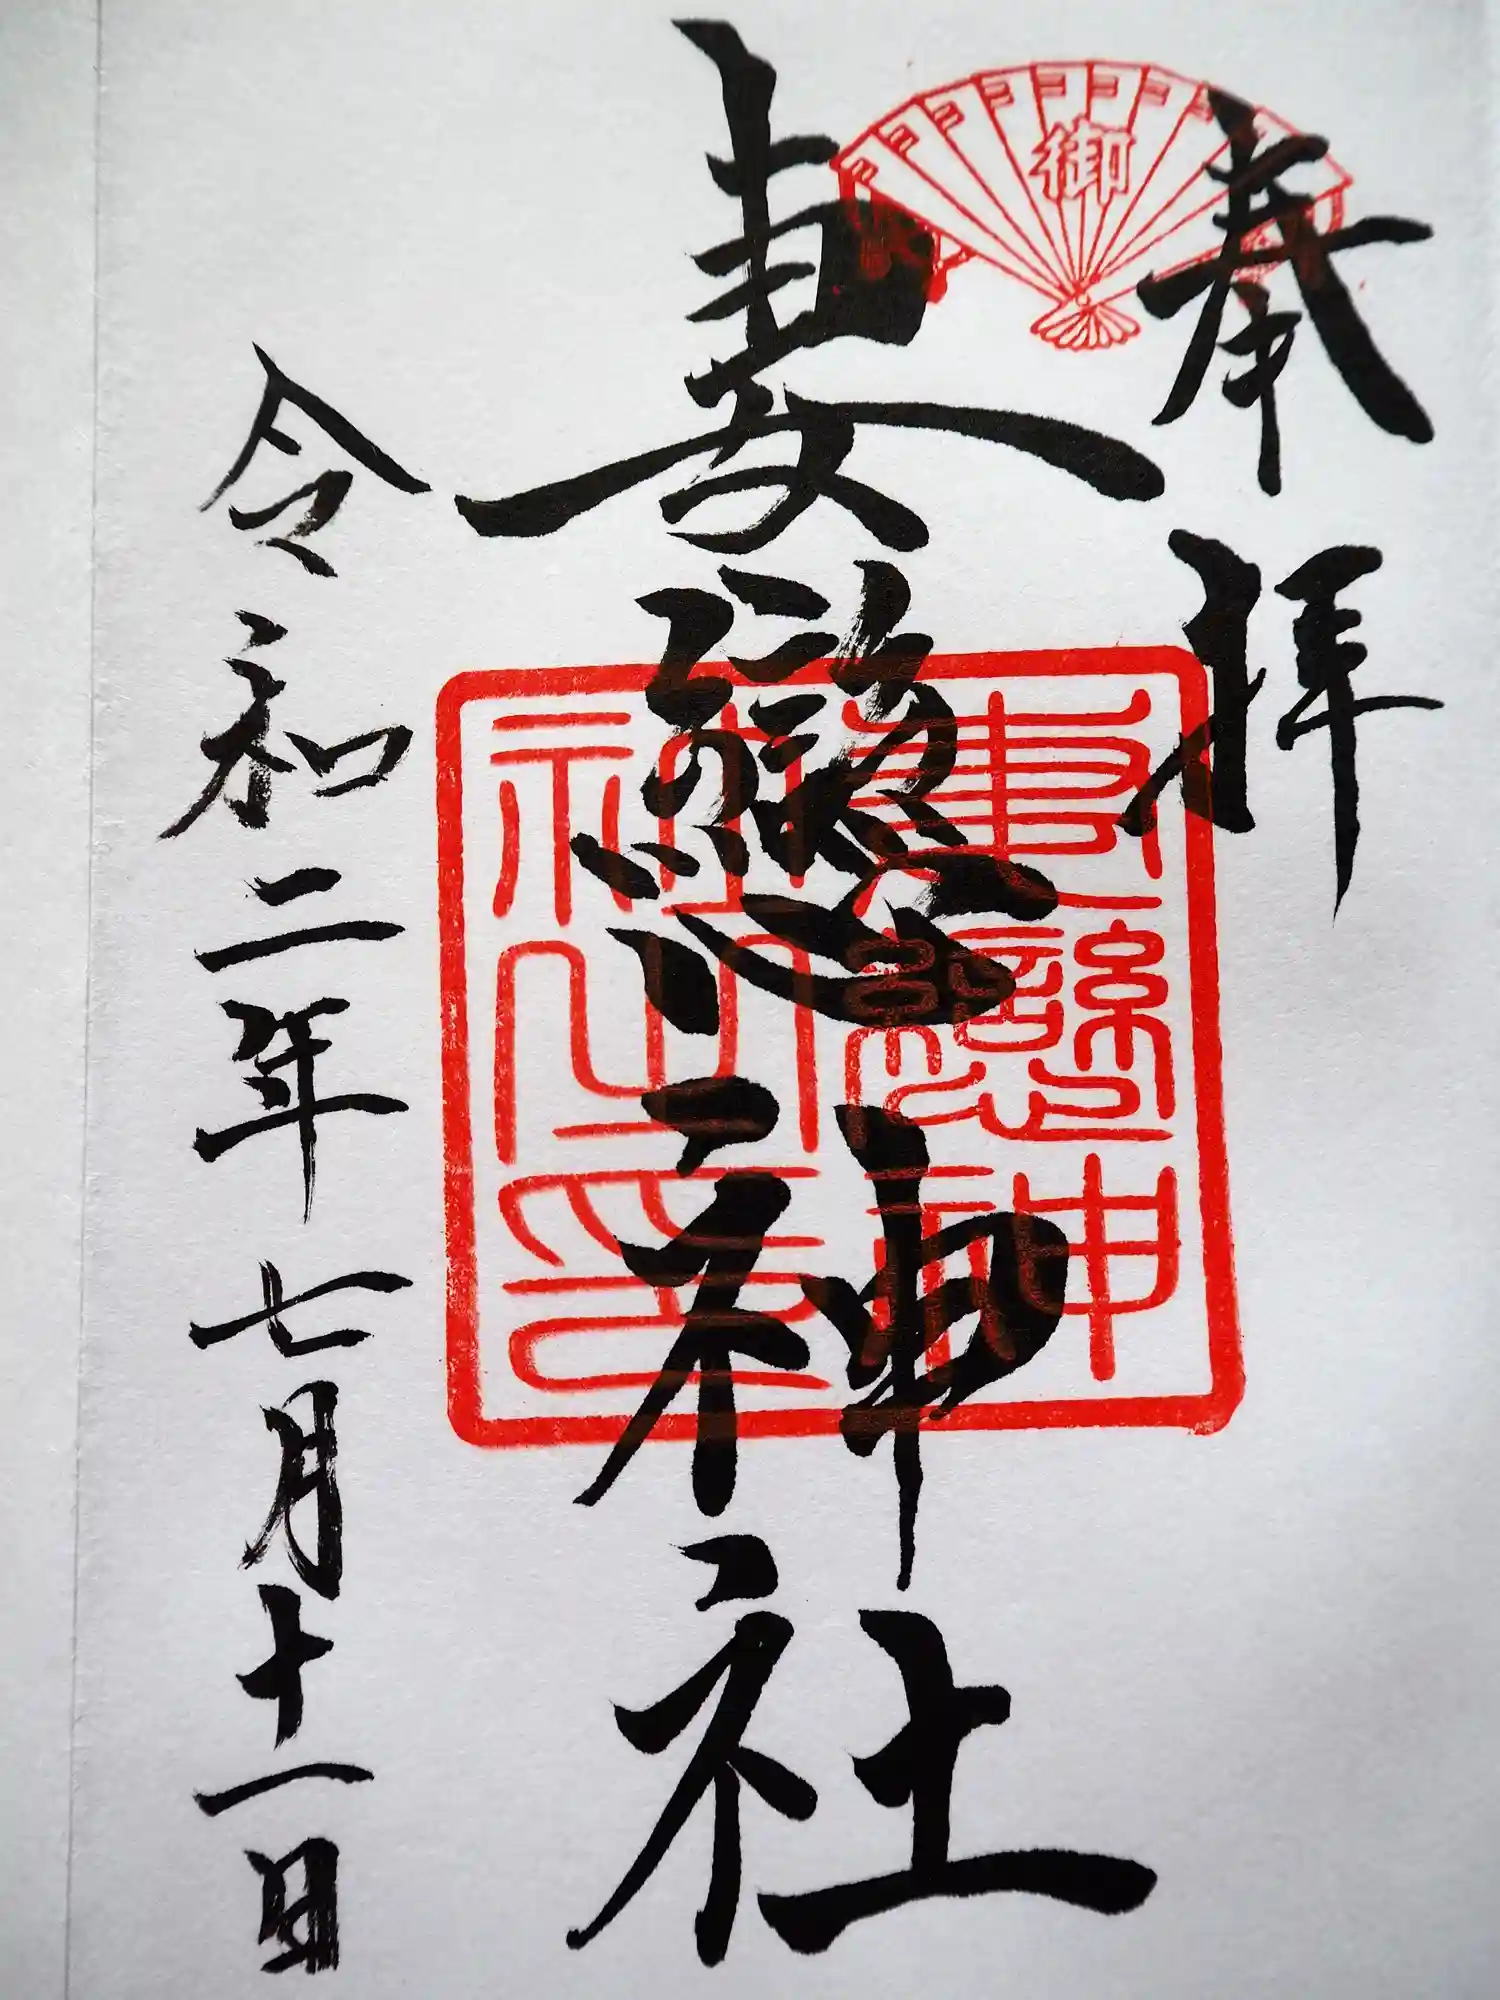 奉拝
御
妻戀神社
妻戀神
社之印
令和二年七月十一日